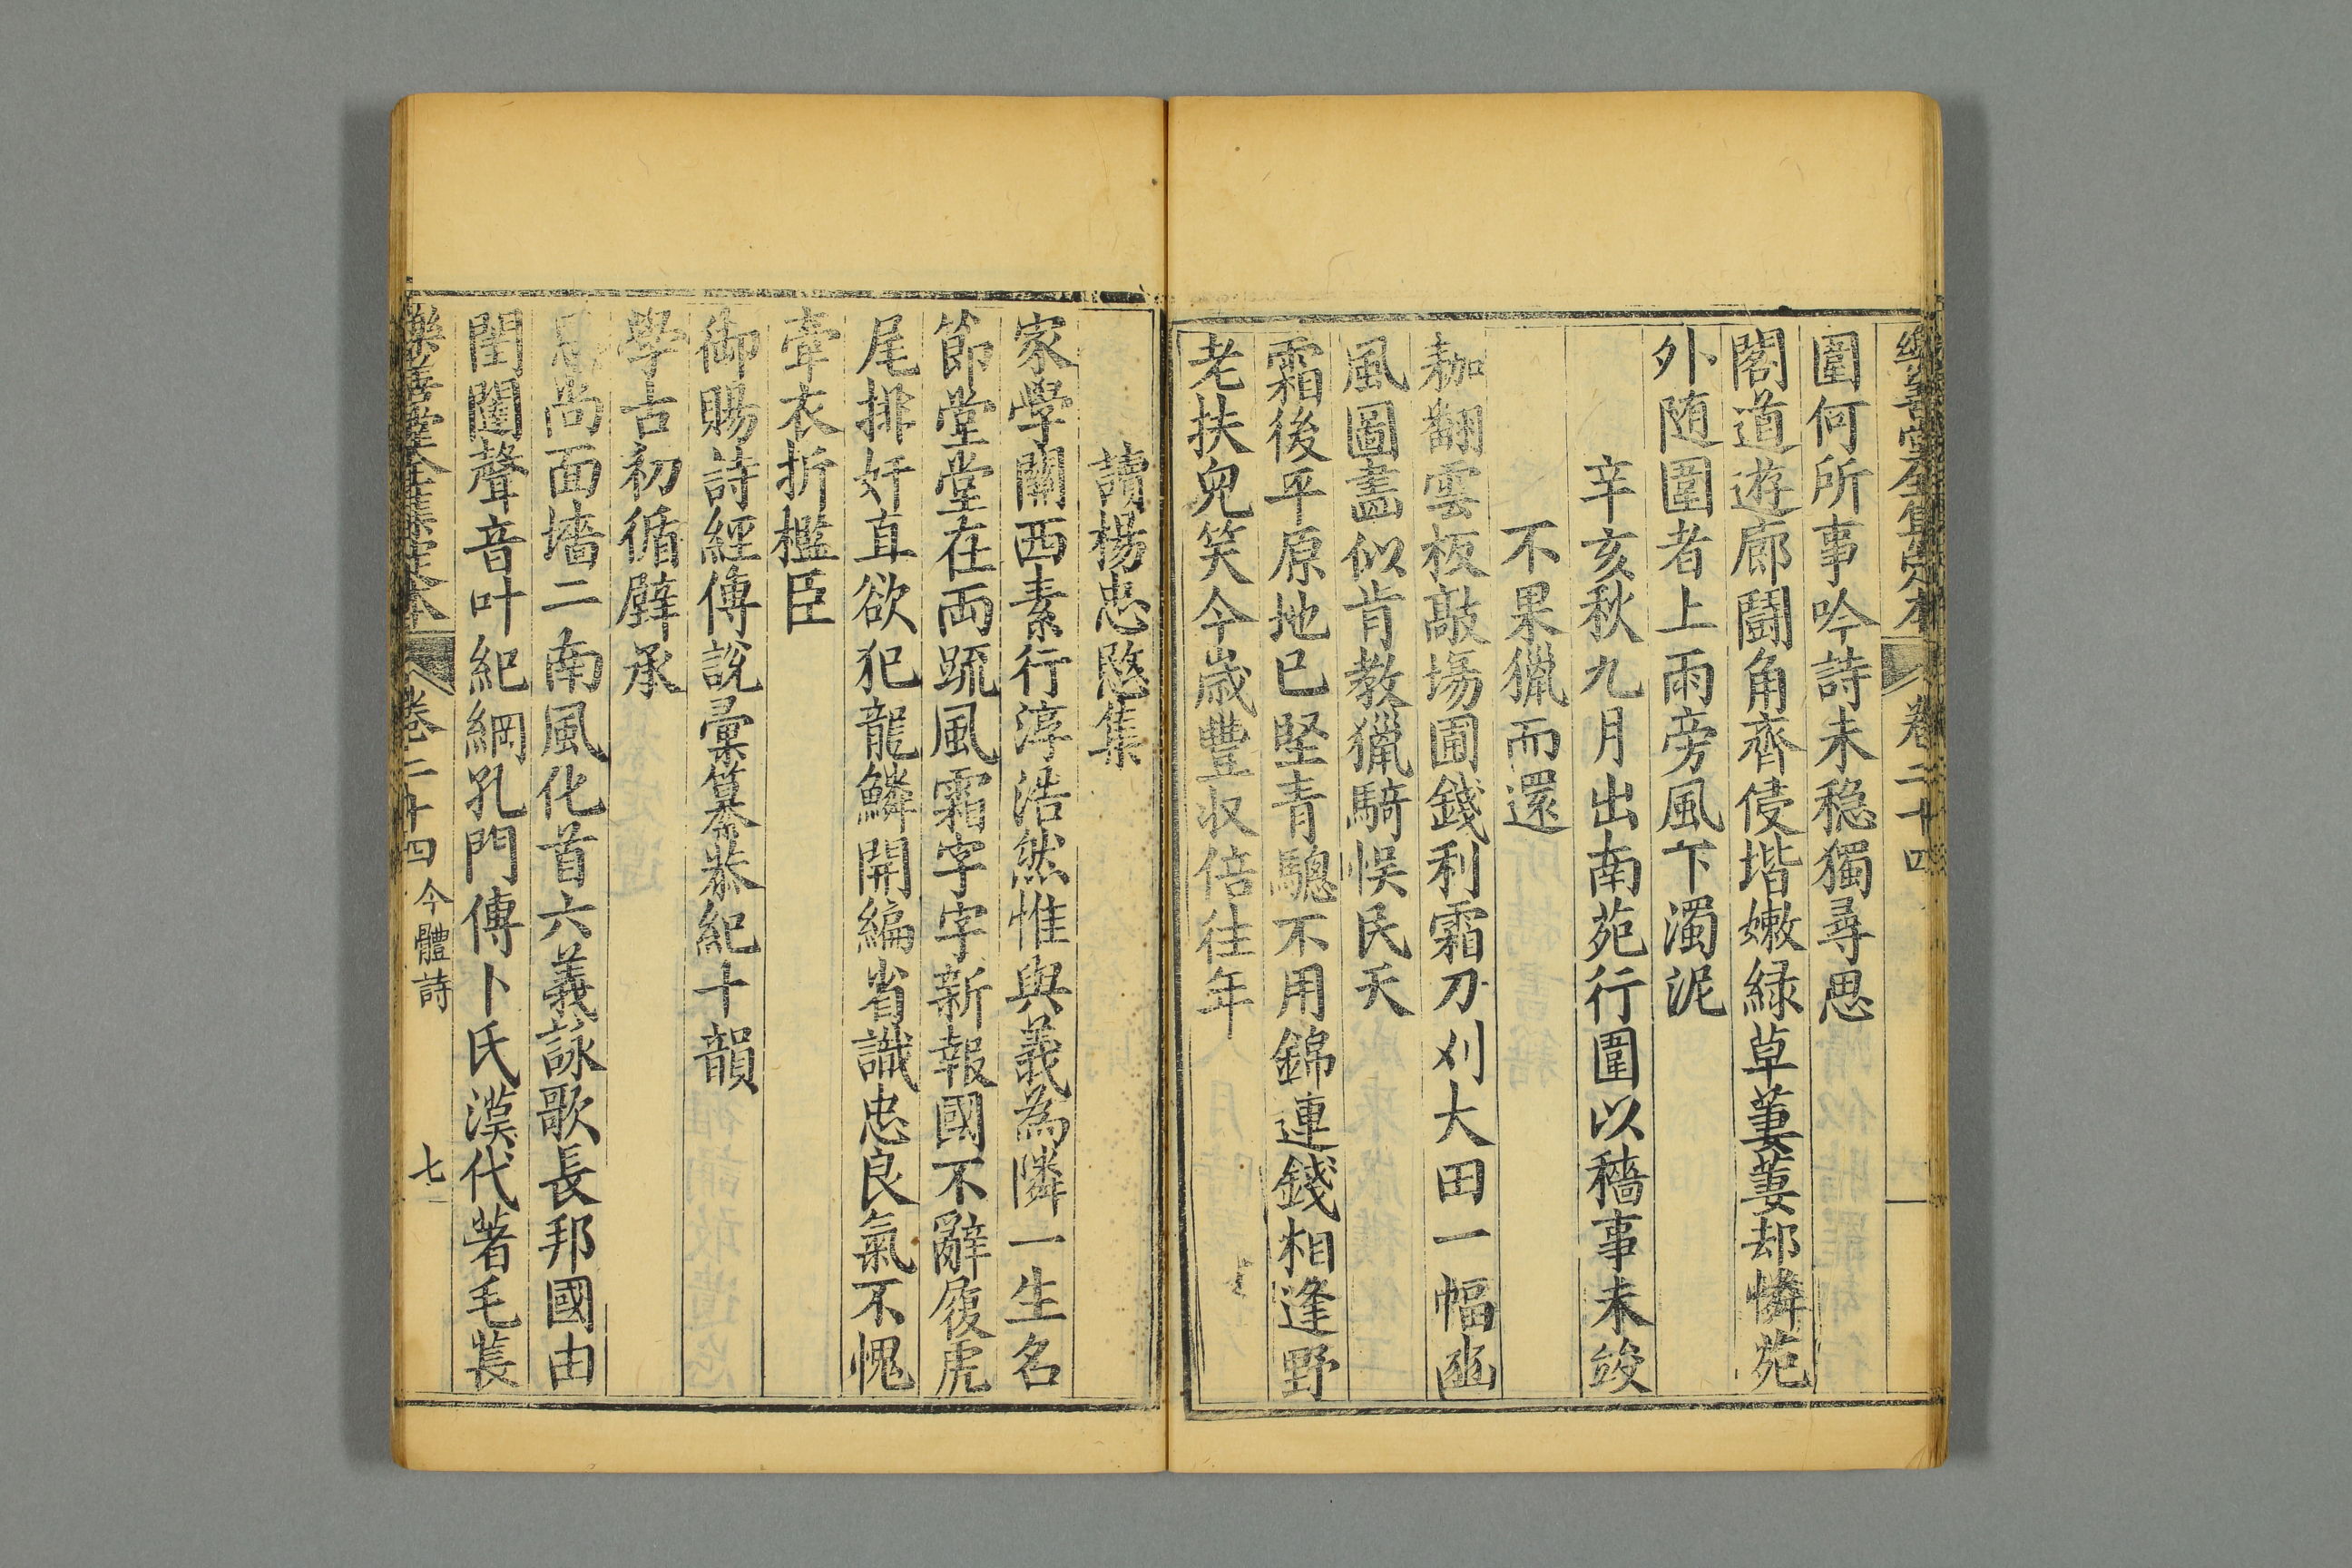 樂善堂全集定本 卷二十四
圍何所事吟詩未穏獨尋思
閣道遊廊鬪角齊侵堦嫩緑草萋萋却憐苑
外随圍者上雨旁風下濁泥
辛亥秋九月出南苑行圍以穡事未竣
不果獵而還
耞翻雲板敲塲圃錢利霜刀刈大田一幅豳
風圖畫似肯教獵騎悞民天
霜後平原地已堅青驄不用錦連錢相逢野
老扶兒笑今歳豐収倍往年
讀楊忠愍集
家學關西素行淳浩然惟與義為隣一生名
節堂堂在両疏風霜字字新報國不辭履虎
尾排奸直欲犯龍鱗開編省識忠良氣不愧
牽衣折檻臣
御賜詩經傳説彚纂恭紀十韻
學古初循
面墻二南風化首六義詠歌長邦國由
閨閫聲音叶紀綱孔門傳卜氏漢代著毛萇
樂善堂全集定本 卷二十四 今體詩 七